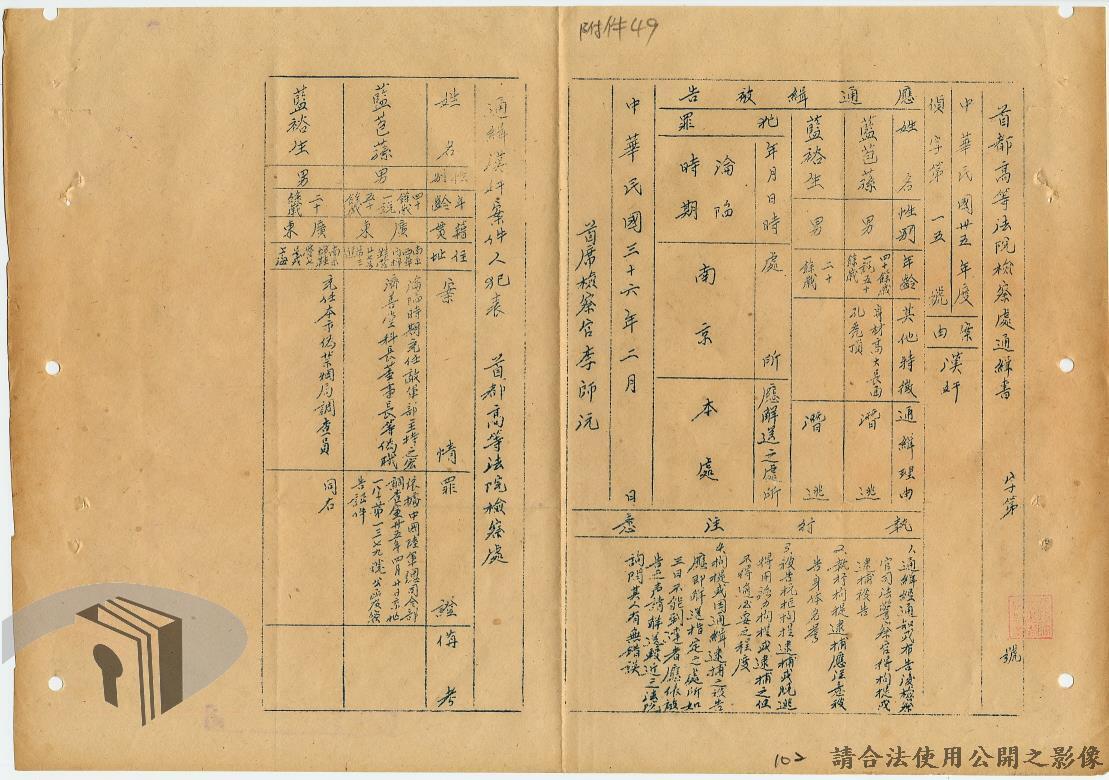 附件49
首都高等法院檢察處通緝書 字第 號
中華民國卅五年度
偵字第一五號
案由
漢奸
應通緝被告
姓名 性別 年齡 其他特徵 通緝理由
藍芭蓀 男 四十餘歲一說五十餘歲 身材高大長面孔 潛逃
藍裕生 男 二十餘歲 潛逃
犯罪
年月日時 處所 應解送之處所
淪陷時期 南京 本處
中華民國三十六年二月 日
首席檢察官李師沅
執行注意
1.通緝經通知或布告後檢察
官司法警察官得拘提或
逮捕被告
2.執行拘提逮捕應注意被
告身体名譽
3.被告抗拒拘提逮捕或脫逃
得用強力拘提或逮捕之但
不得逾必要之程度
4.拘提或因通緝逮捕之被告
應即解送指定之處所如
三日不能到達者應依被
告之聲請解送較近之法院
訊問其人有無錯誤
通緝漢奸案件人犯表 首都高等法院檢察處
姓名 性別 年齡 籍貫 住址 案情 罪證 備考
藍芭蓀 男 四十餘歲一說五十餘歲 廣東
淪陷時期充任敵軍部主持之宏
濟善堂科長董事長等偽職
依據中國陸軍總司令部
調查室卅五年四月廿日京北
一八字第一三七九號公函及密
告訴件
藍裕生 男 二十餘歲 廣東
充任本市偽禁烟局調查員
同右
102
請合法使用公開之影像